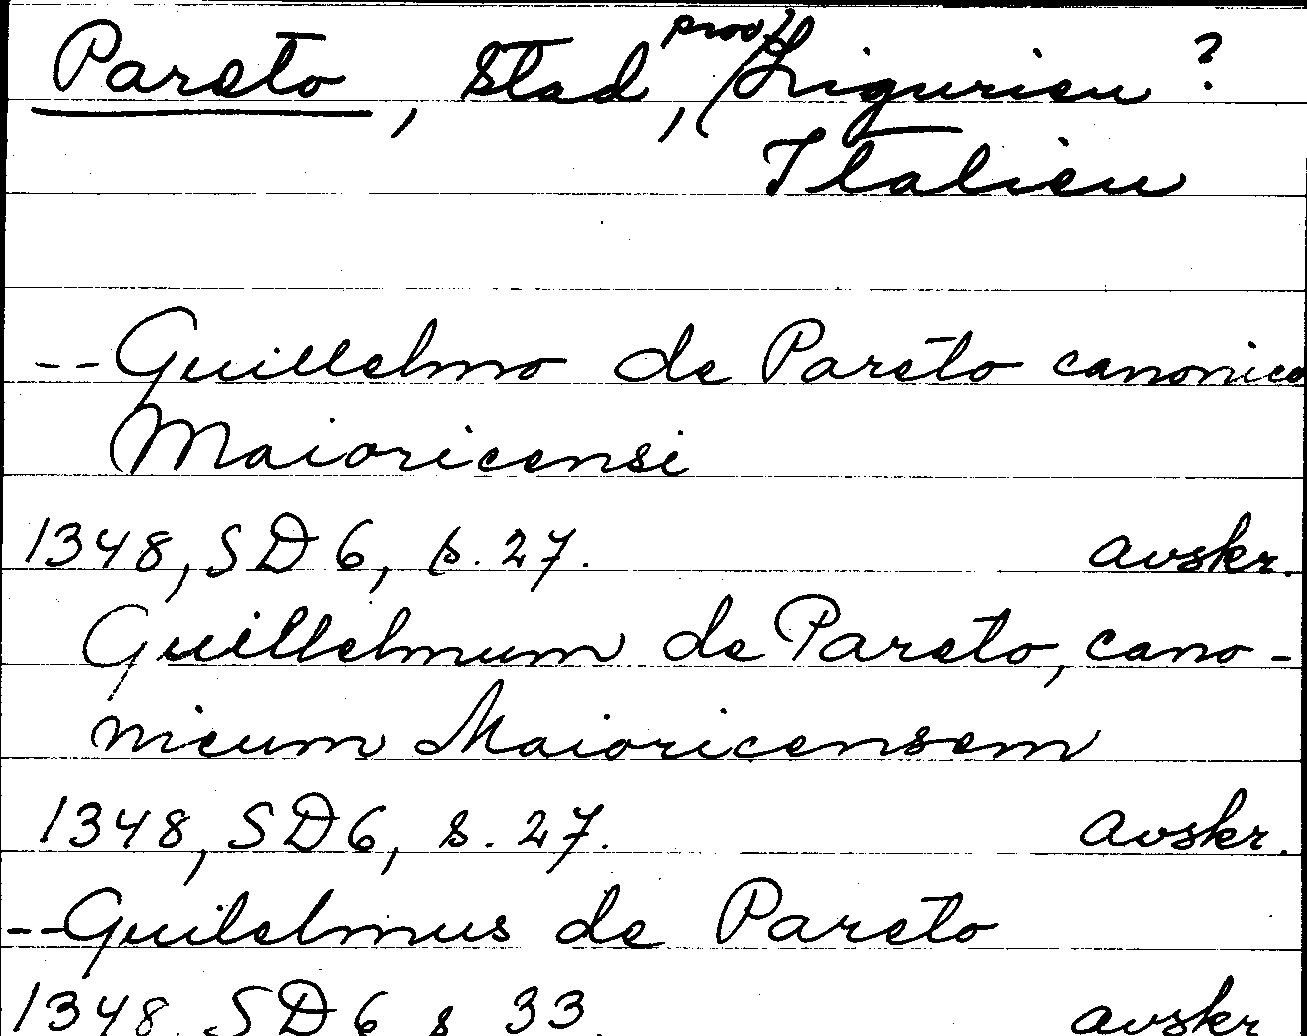 Pareto, stad, prov? Ligurien ?
Italien
--Guillelmo de Pareto canonico
Maioricensi
1348, SD 6, s. 27. avskr.
Guillelmum de Pareto, cano-
nicum Maioricensem
1348, SD 6, s. 27. avskr.
--Guilelmus de Pareto
1348, SD 6 s 33. avskr